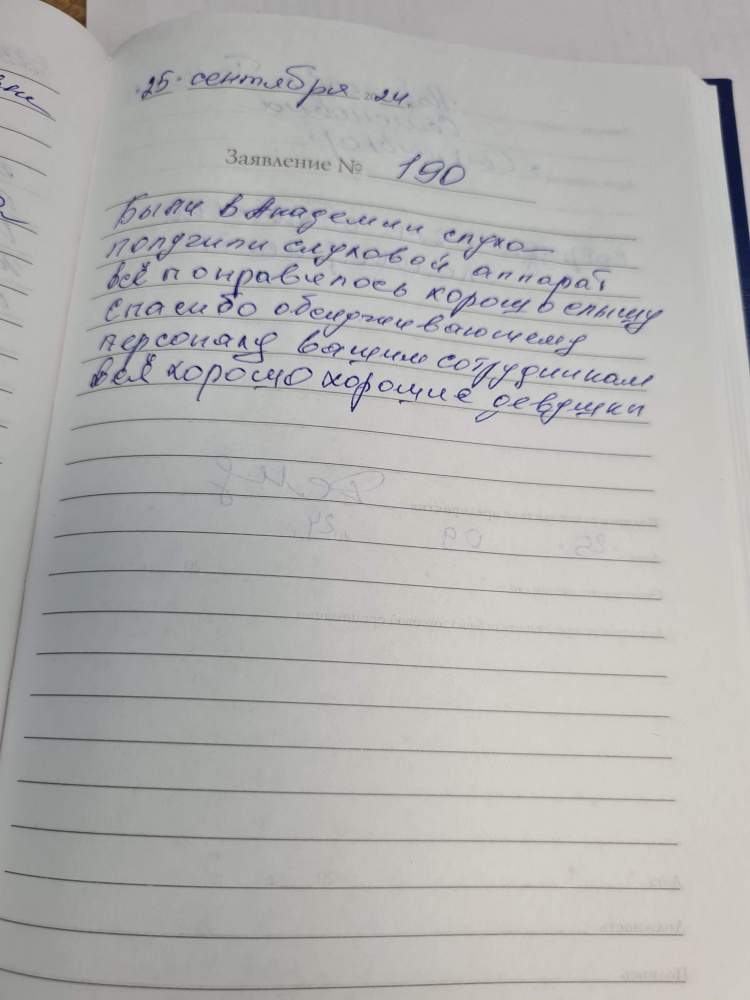 "25" сентября 2024.
Заявление № 190
Были в Академии слуха
получили слуховой аппарат
всё понравилось хорошо слышу
спасибо обслуживающему
персоналу вашим сотрудникам
всё хорошо хорошие девушки